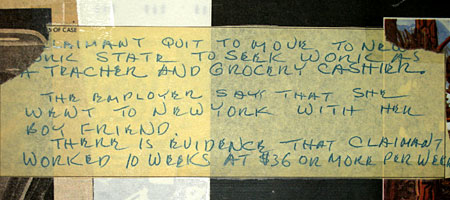 S OF CASE
CLAIMANT QUIT TO MOVE TO NEW
YORK STATE TO SEEK WORK AS
A TEACHER AND GROCERY CASHIER.
THE EMPLOYER SAYS THAT SHE
WENT TO NEW YORK WITH HER
BOY FRIEND.
THERE IS EVIDENCE THAT CLAIMANT
WORKED 10 WEEKS AT $36 OR MORE PER WEEK